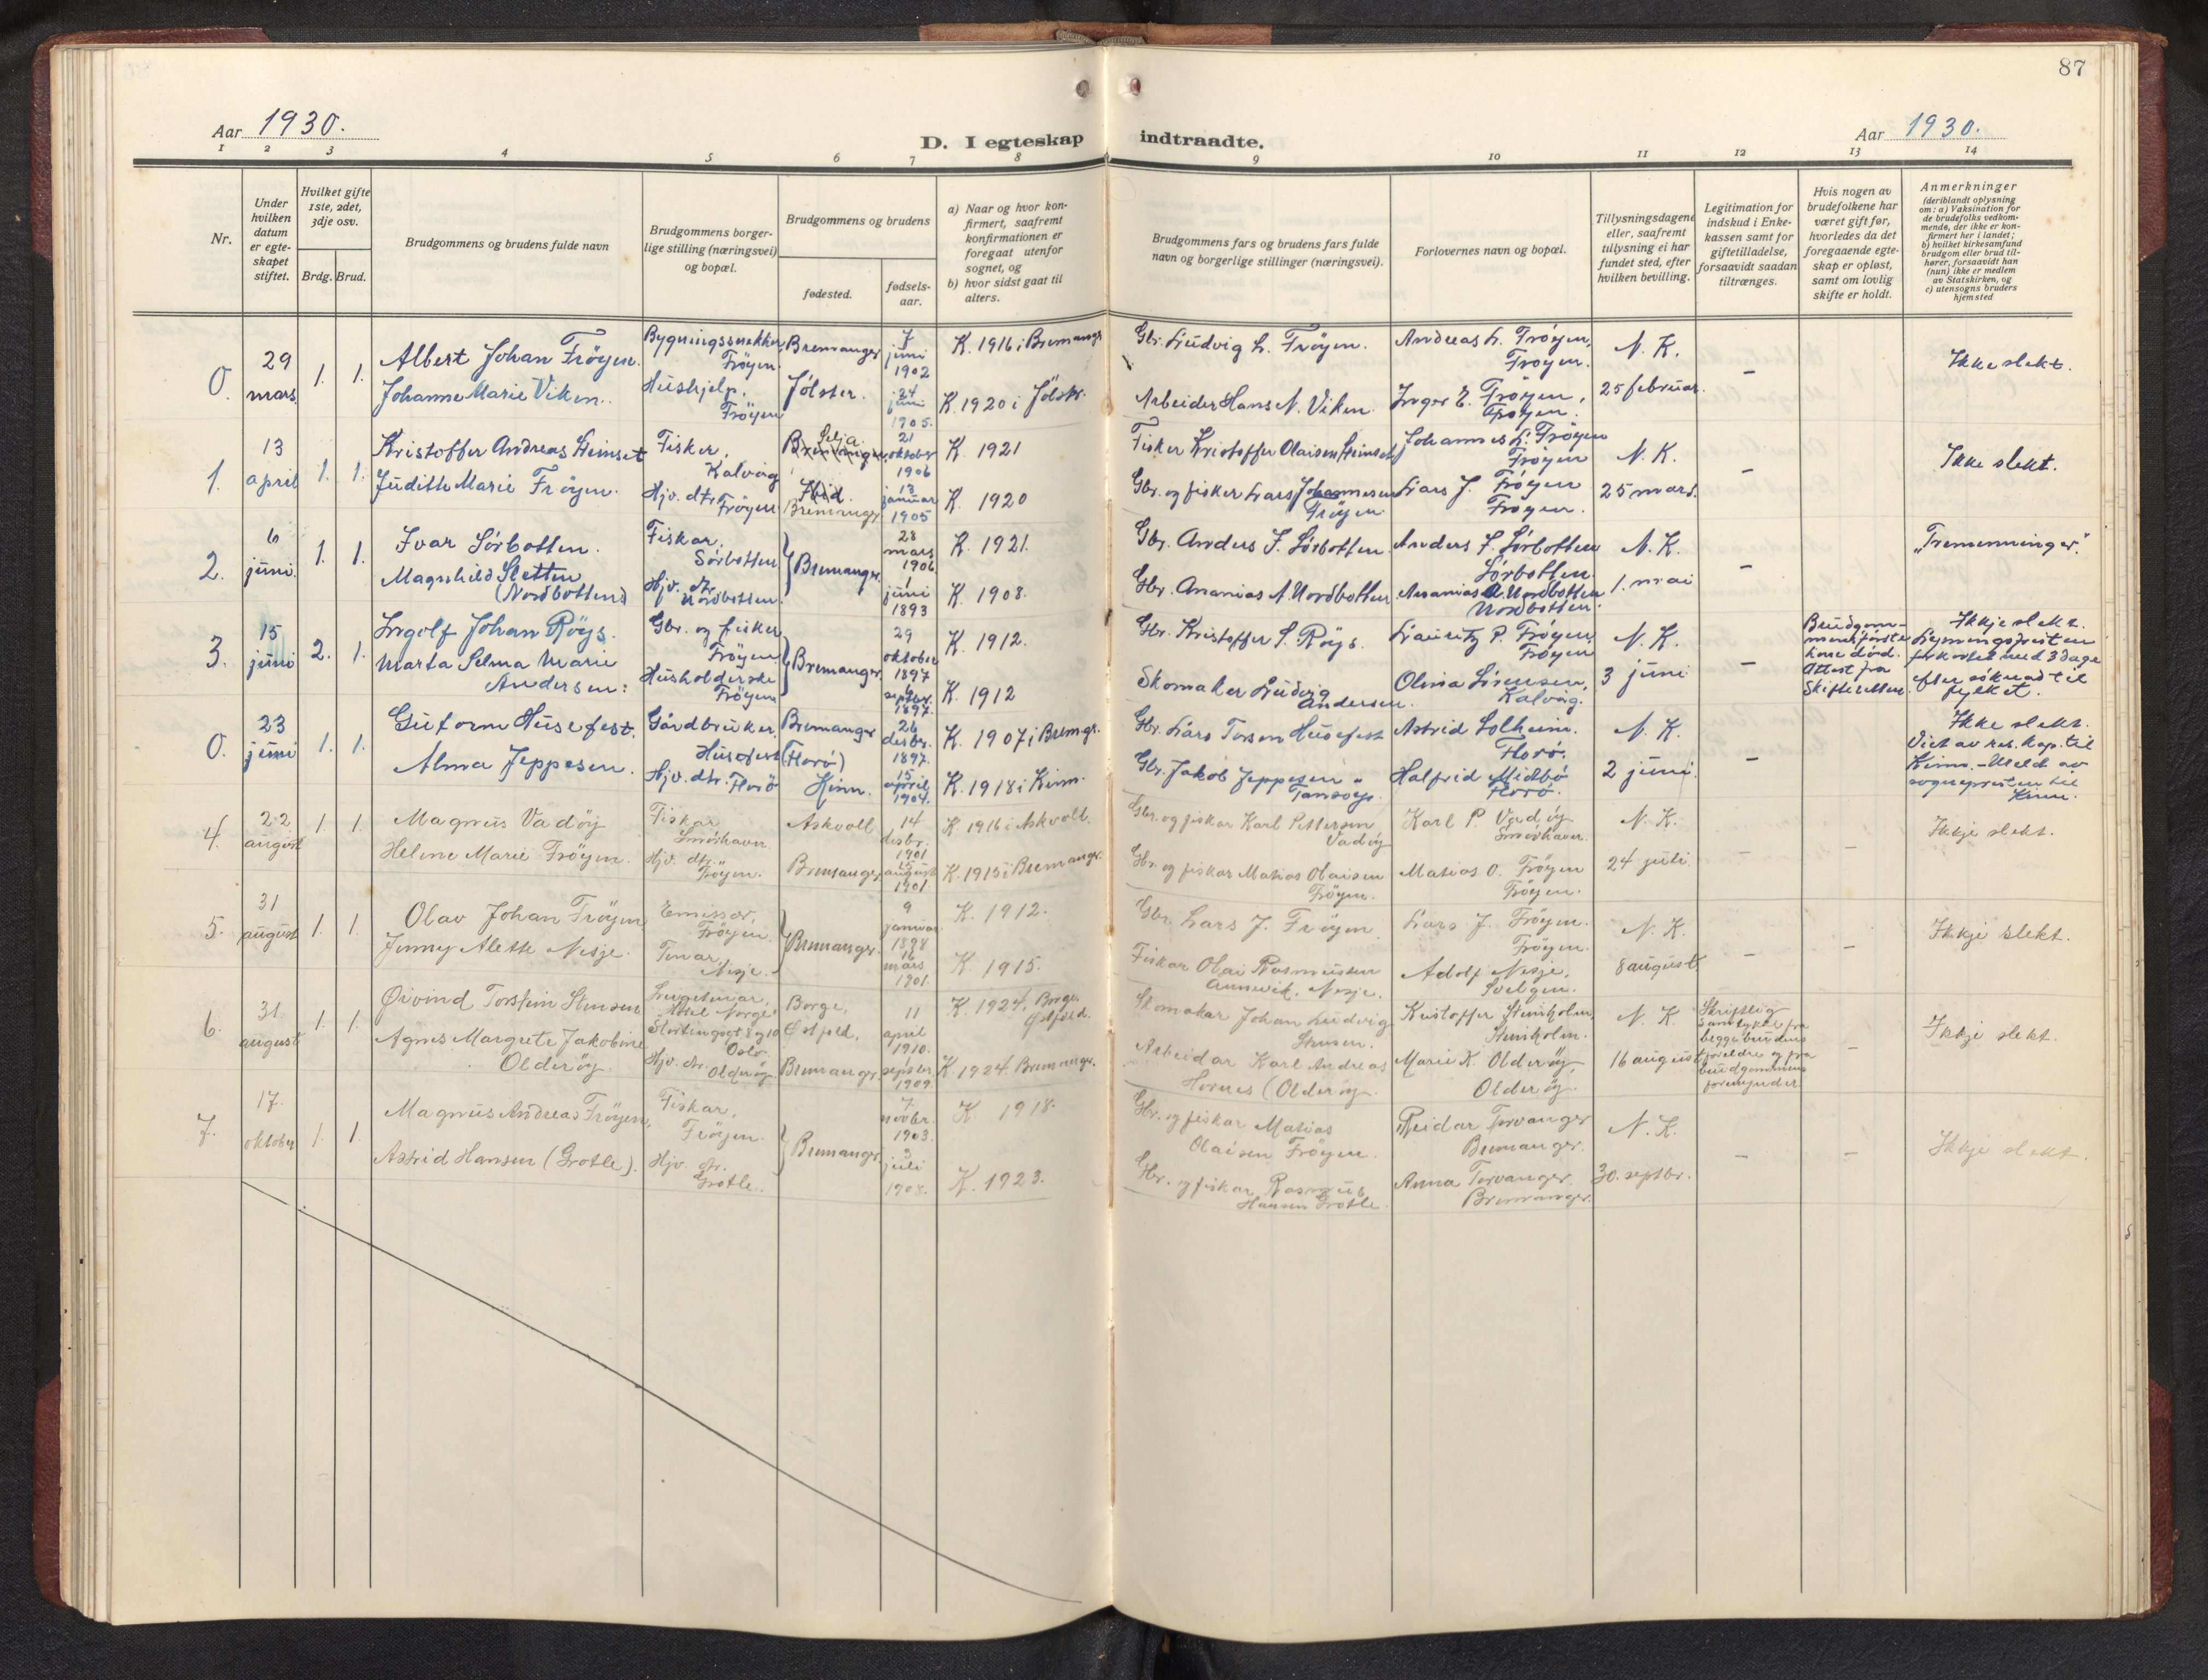 87
Aar 1930.
D. I egteskap indtraadte.
Aar 1930.
1 2 3 4 5 6 7 8 9 10 11 12 13 14
Nr.
Under hvilken datum er egteskapet stiftet.
Hvilket gifte 1ste, 2det, 3dje osv.
Brdg. Brud.
Brudgommens og brudens fulde navn
Brudgommens borgerlige stilling (næringsvei) og bopæl.
Brudgommens og brudens
fødested.
fødselsaar.
a) Naar og hvor konfirmert, saafremt konfirmationen er foregaat utenfor sognet, og
b) hvor sidst gaat til alters.
Brudgommens fars og brudens fars fulde navn og borgerlige stillinger (næringsvei).
Forlovernes navn og bopæl.
Tillysningsdagene eller, saafremt tillysning ei har fundet sted, efter hvilken bevilling.
Legitimation for indskud i Enkekassen samt for giftetilladelse, forsaavidt saadan tiltrænges.
Hvis nogen av brudefolkene har været gift før, hvorledes da det foregaaende egteskap er opløst, samt om lovlig skifte er holdt.
Anmerkninger (deriblandt oplysning om: a) Vaksination for de brudefolks vedkommende, der ikke er konfirmert her i landet; b) hvilket kirkesamfund brudgom eller brud tilhører, forsaavidt han (hun) ikke er medlem av Statskirken, og c) utensogns bruders hjemsted
0. 29 mars 1. 1.
Albert Johan Frøyen. Bygningssnekker, Frøyen. Bremanger 7 juni 1902 K. 1916 i Bremangr. Gbr. Ludvig L. Frøyen. Andreas L. Frøyen, Frøyen. N. K.
Johanne Marie Viken. Hushjelp, Frøyen Jølster. 24 juni 1905. K. 1920 i Jølstr. Arbeider Hans N. Viken. Inger E. Frøyen, Frøyen. 25 februar. – Ikke slekt.
1. 13 april 1. 1.
Kristoffer Andreas Steinset Fisker, Kalvåg Selja 21 oktober 1906 K. 1921 Fisker Kristoffer Olaisen Steinset Johannes L. Frøyen Frøyen N. K.
Judith Marie Frøyen. Hjv. dtr. Frøyen Bremangr. 13 januar 1905 K. 1920 Gbr. og fisker Lars Johannesen Frøyen Lars J. Frøyen Frøyen. 25 mars. – Ikke slekt.
2. 6 juni. 1. 1.
Ivar Sørbotten. Fiskar, Sørbotten Bremanger. 28 mars 1906 K. 1921. Gbr. Anders J. Sørbotten Anders J. Sørbotten Sørbotten. N. K.
Magnhild Sletten (Nordbotten) Hjv. dtr. Nordbotten. 1 juni 1893 K. 1908. Gbr. Ananias A. Nordbotten Ananias A. Nordbotten Nordbotten. 1. mai – "Tremenninger".
3. 15 juni 2. 1.
Ingolf Johan Røys. Gbr. og fisker Frøyen. Bremanger. 29 oktober 1897 K. 1912. Gbr. Kristoffer S. Røys. Lauritz P. Frøyen Frøyen N. K.
Marta Selma Marie Andersen: Husholderske Frøyen septbr. 1897. K. 1912 Skomaker Ludvig Andersen. Olina Sørensen, Kalvåg. 3 juni – Brudgommens første kone død. Attest fra Skifteretten. Ikkje slekt. Lysningsfristen forkortet med 3 dage efter søknad til fylket.
0. 23 juni 1. 1.
Guttorm Husefest. Gårdbruker, Husefest Bremanger (Florø) 26 desbr. 1897. K. 1907 i Bremgr. Gbr. Lars Torsen Husefest Astrid Solheim. Florø. N. K.
Alma Jeppesen. Hjv. dtr. Florø Kinn. 15 april 1904. K. 1918 i Kinn. Gbr. Jakob Jeppesen Tansøy. Halfrid Midbø Florø. 2 juni. – Ikke slekt. Viet av res. kap. til Kinn. – Meld av sognepresten til Kinn.
4. 22 august 1. 1.
Magnus Vadøy Fiskar Smørhavn Askvoll 14 desbr. 1901 K. 1916 i Askvoll. Gbr. og fiskar Karl Pettersen Vadøy Karl P. Vadøy Smørhavn. N. K.
Helene Marie Frøyen. Hjv. dtr. Frøyen. Bremanger 15 august 1901 K. 1915 i Bremangr. Gbr. og fiskar Matias Olaisen Frøyen. Matias O. Frøyen Frøyen. 24 juli. – – Ikkje slekt.
5. 31 august 1. 1.
Olav Johan Frøyen Emissær, Frøyen Bremangr. 9 januar 1898 K. 1912. Gbr. Lars J. Frøyen Lars J. Frøyen. Frøyen. N. K.
Jenny Alette Nesje. Tenar, Nesje. 16 mars 1901. K. 1915. Fiskar Olai Rasmussen Annevik, Nesje. Adolf Nesje, Svelgen. 8 august. – – Ikkje slekt.
6. 31 august 1. 1.
Øivind Torstein Stensen Hotel Norge, Stortingsgt. 8 og 10 Oslo. Borge, Østfold. 11 april 1910. K. 1924, Borge, Østfold. Skomakar Johan Ludvig Stensen. Kristoffer Steinholm Steinholm. N. K.
Agnes Margrete Jakobine Olderøy. Hjv. dtr. Olderøy Bremangr. septbr. 1909 K. 1924 Bremangr. Arbeidar Karl Andreas Hornes (Olderøy. Marie K. Olderøy, Olderøy. 16 august Skriftlig samtykke fra begge brudens foreldre og fra brudgommens formynder – Ikkje slekt.
7. 17 oktober 1. 1.
Magnus Andreas Frøyen, Fiskar, Frøyen. Bremangr. 7. novbr. 1903. K. 1918. Gbr. og fiskar Matias Olaisen Frøyen. Reidar Torvanger Bremanger. N. K.
Astrid Hansen (Grotle). Hjv. dtr. Grotle. 3 juli 1908. K. 1923. Gbr. og fiskar Rasmus Hansen Grotle Anna Torvanger Bremanger. 30. septbr. – – Ikkje slekt.